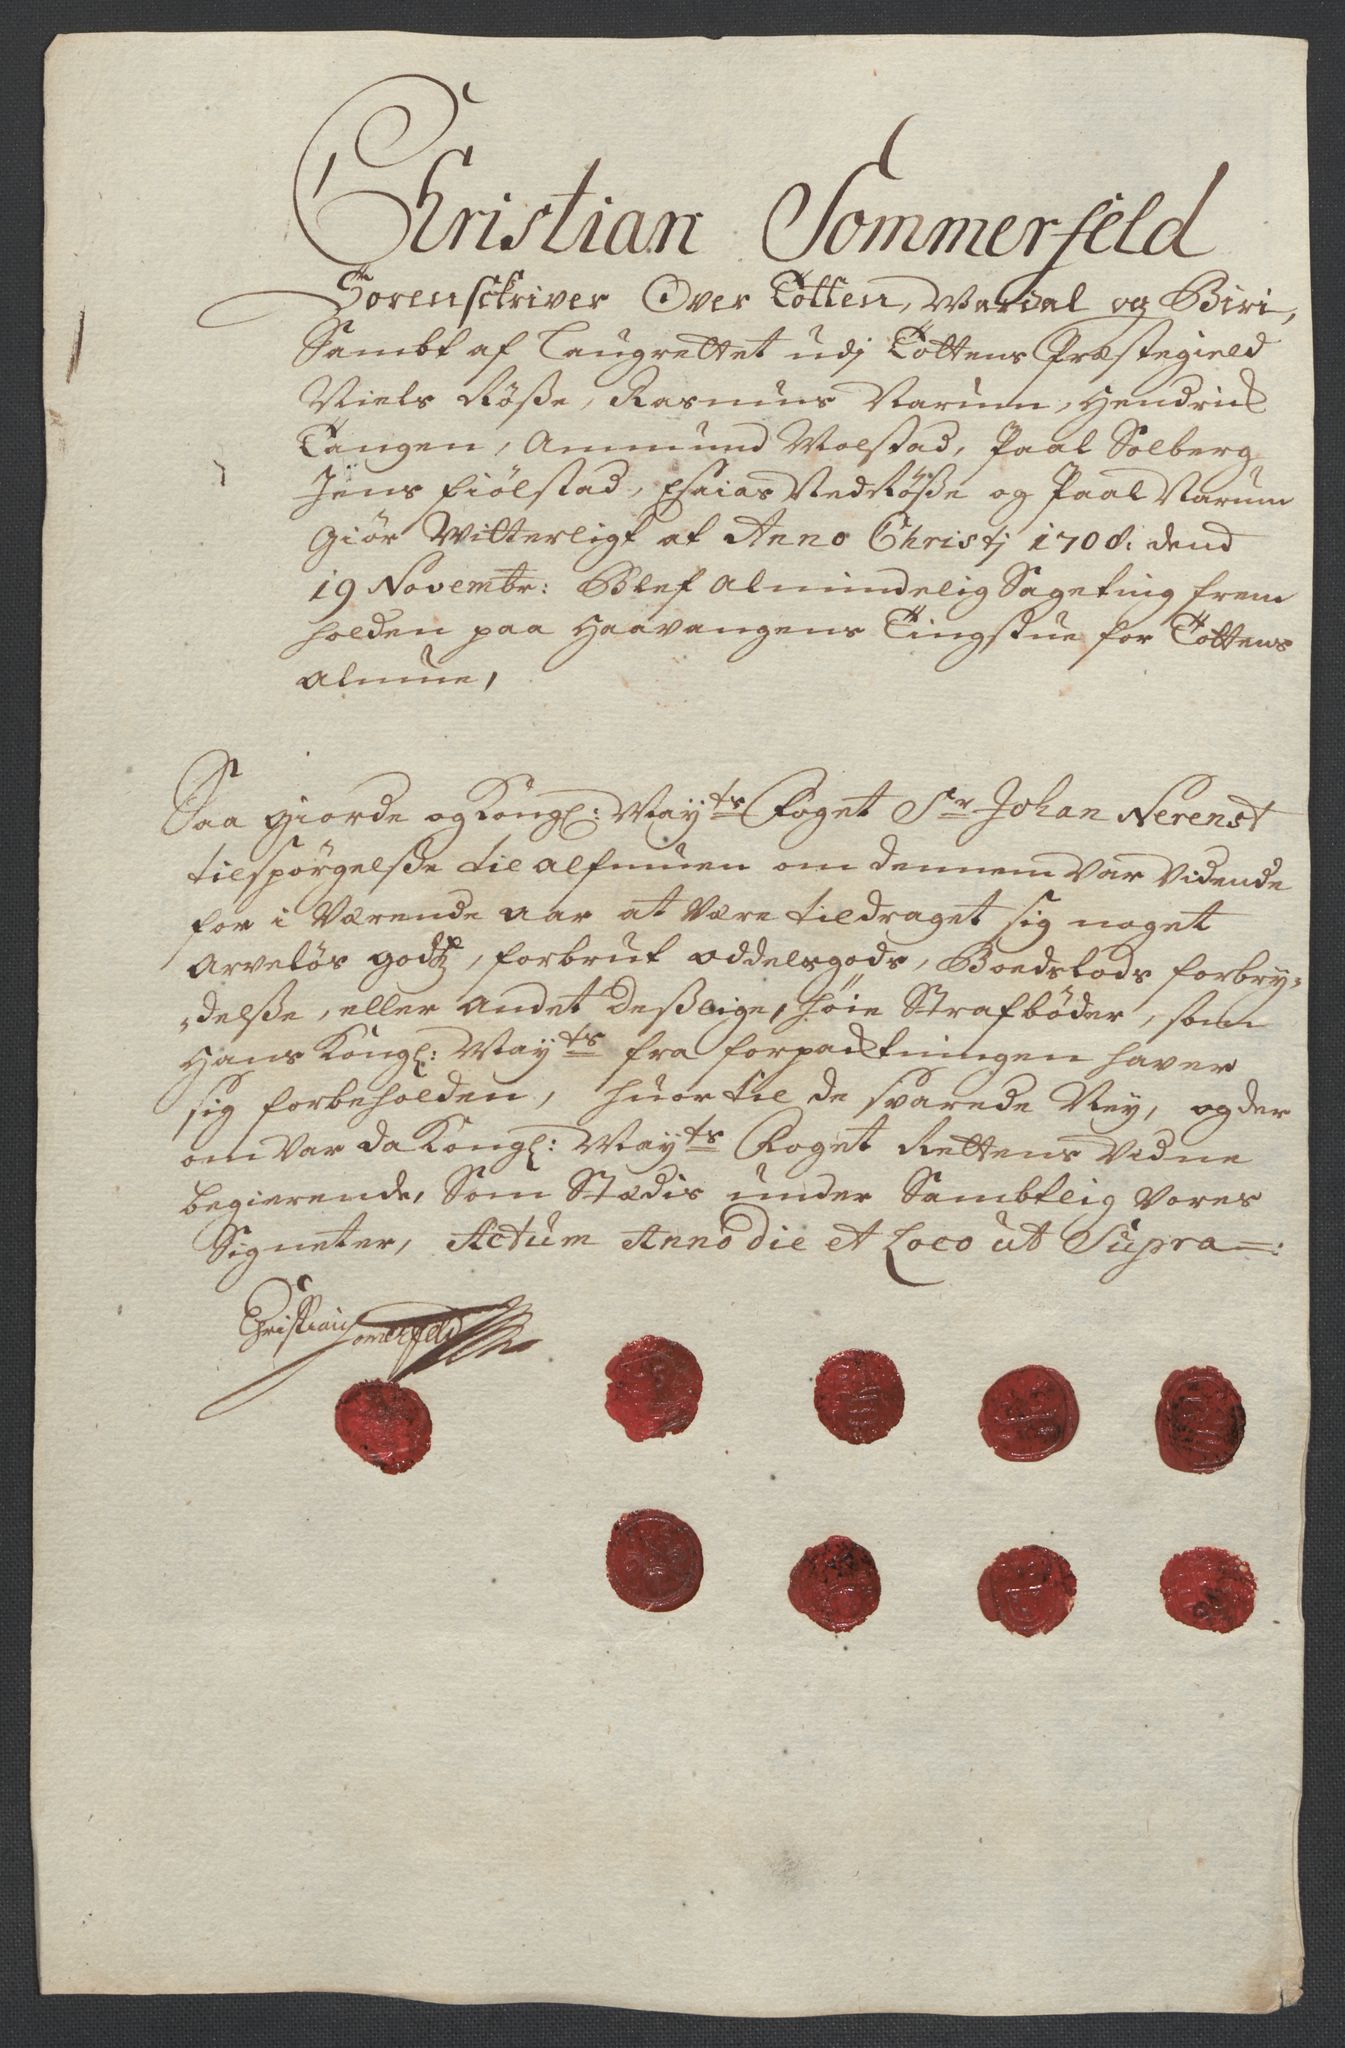 Christian Sommerfeld
Sorenschriver Over Totten, Wardal og Biri,
Sambt af Laugrettet udj Tottens Præstegield
Niels Røße, Rasmus Narum, Hendrich
Tangen, Ammund Wolstad, Paal Solberg
Jens Fiølstad, Esaias NedRøße og Paal Narum
Giør Witterligt at Anno Christj 1708: dend
19 Novembr: Blef Almindelig Sageting frem
holden paa Haavangens Tingstue for Tottens
Almue,
Saa giorde og Kongl: Mayts Foget Sr Johan Nerenst
tilspørgelße til alfmuen om dennem Var Vidende
for i Værende Aar at Være tildraget sig noget
Arveløs godtz, forbrut oddelsgods, Boedslods forbry=
=delße, eller Andet deßlige, høie Strafbøder, som
Hans Kongl: Mayts fra forpachtningen haver
sig forbeholden, huortil de svarede Ney, og der
om Var da Kongl: Mayts Foget Rettens Vidne
begierende, Som Stædis under Sambtlig Vores
Signeter, Actum Anno die et Loco ut Supra=:
Christian Somerfeld